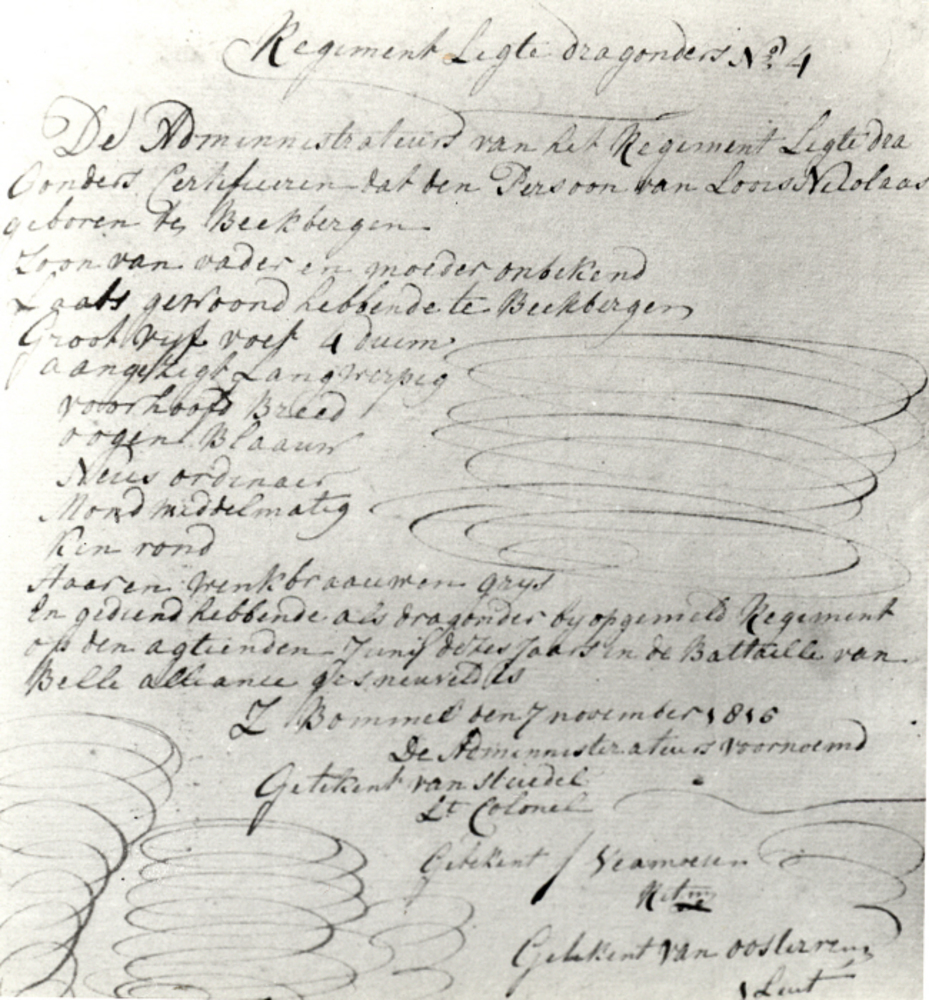 Regiment Ligte dragonders No. 4
De Adminnistrateurs van het Regiment Ligte dra
Gonders Certifieeren dat den Persoon van Loois Nicolaas
geboren te Beekbergen
Zoon van vader en moeder onbekend
Laats gewoond hebbende te Beekbergen
Groot vyf voet 4 duim
aangezigt Langwerpig
voorhoofd Breed
oogen Blaauw
Neus ordinair
Mond middelmatig
kin rond
Haar en wenkbraauwen grys
En gediend hebbende als dragonder by opgemeld Regiment
op den agtienden Junij dezes Jaars in de Battaille van
Belle alliance gesneuveld is
Z Bommel den 7 november 1816
De Adminnisterateurs voornoemd
Getekent van
Lt Colonel
Getekent /
Getekent van
Luit